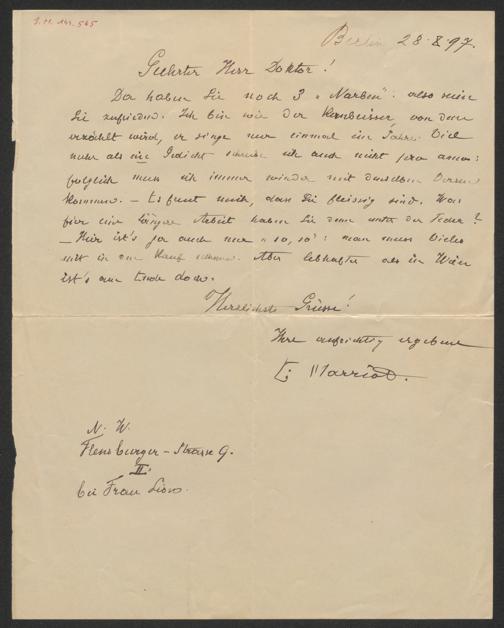 I.N. 141.565
Berlin 28.8.97.
Geehrter Herr Doktor!
Da haben Sie noch 3 „Narben“: also seien
Sie zufrieden. Ich bin wie der von dem
erzählt wird, er singe nur einmal im Jahre. Viel
mehr als ein Gedicht schreibe ich auch nicht pro anno:
folglich muss ich immer wieder mit denselben Versen
kommen. – Es freut mich, dass Sie fleissig sind. Was
für eine längere Arbeit haben Sie denn unter der Feder?
– Hier ist's ja auch nur „so, so“: man muss Vieles
mit in den Kauf nehmen. Aber lebhafter als in Wien
ist's am Ende doch.
Herzlichste Grüsse!
Ihre aufrichtig ergebene
E. Marriot.
N. W.
Flensburger-Strasse 9.
II.
bei Frau